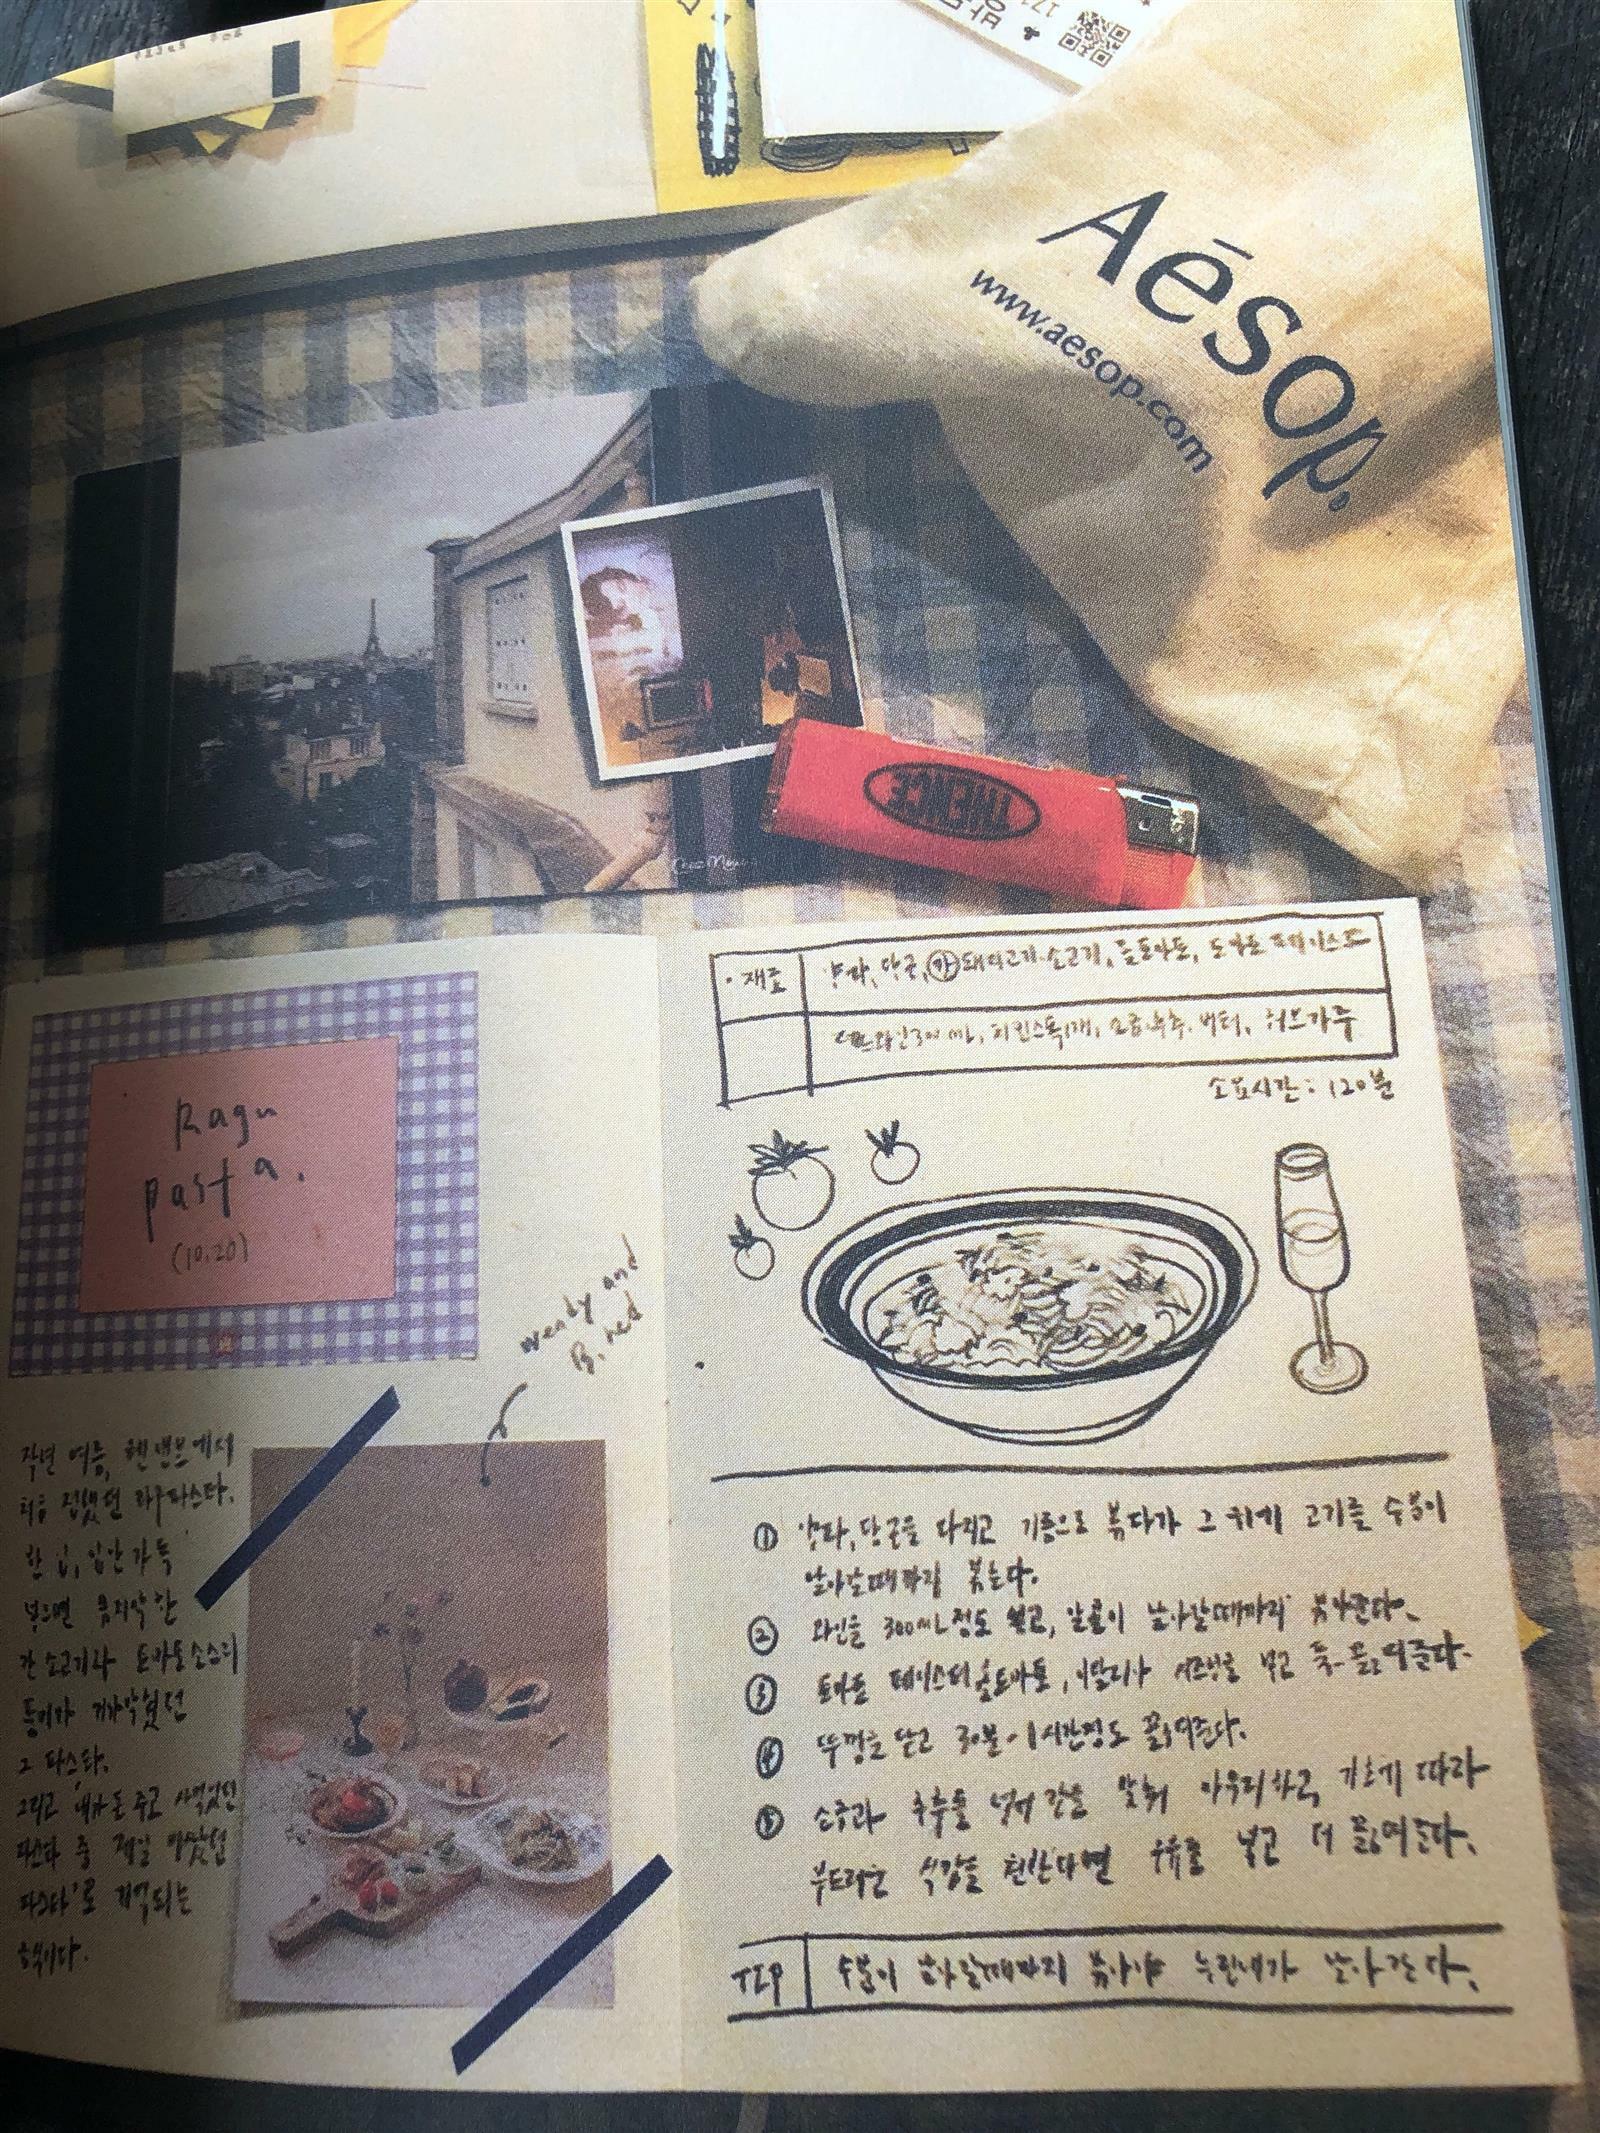 Aēsop.
www.aesop.com
THENCE
Ragu
pasta.
(10.20)
· 재료
양파, 당근, 돼지고기 소고기, 홀토마토, 토마토 페이스트
레드와인 300mL, 치킨스톡 1개, 소금후추, 버터, 허브가루
소요시간 : 120분
and
B. red
작년 여름,
처음 접했던 라구파스타.
한 입, 입안 가득
넣으면 큼지막한
간 소고기와 토마토소스의
풍미가 기가막혔던
그 파스타.
그리고 '내가 돈 주고 사먹었던
파스타 중 제일 맛있던
파스타'로 기억되는
음식이다.
① 양파, 당근을 다지고 기름으로 볶다가 그 위에 고기를 수분이
날아갈때까지 볶는다.
② 와인을 300mL 정도 넣고, 알콜이 날아갈때까지 볶아준다.
③ 토마토 페이스트, 홀토마토, 이탈리아 시즈닝을 넣고 푹- 끓여준다.
④ 뚜껑을 닫고 30분-1시간정도 끓여준다.
⑤ 소금과 후추를 넣어 간을 맞춰 마무리하고, 기호에 따라
부드러운 식감을 원한다면 우유를 넣고 더 끓여준다.
TIP 수분이 날아갈때까지 볶아야 누린내가 날아간다.